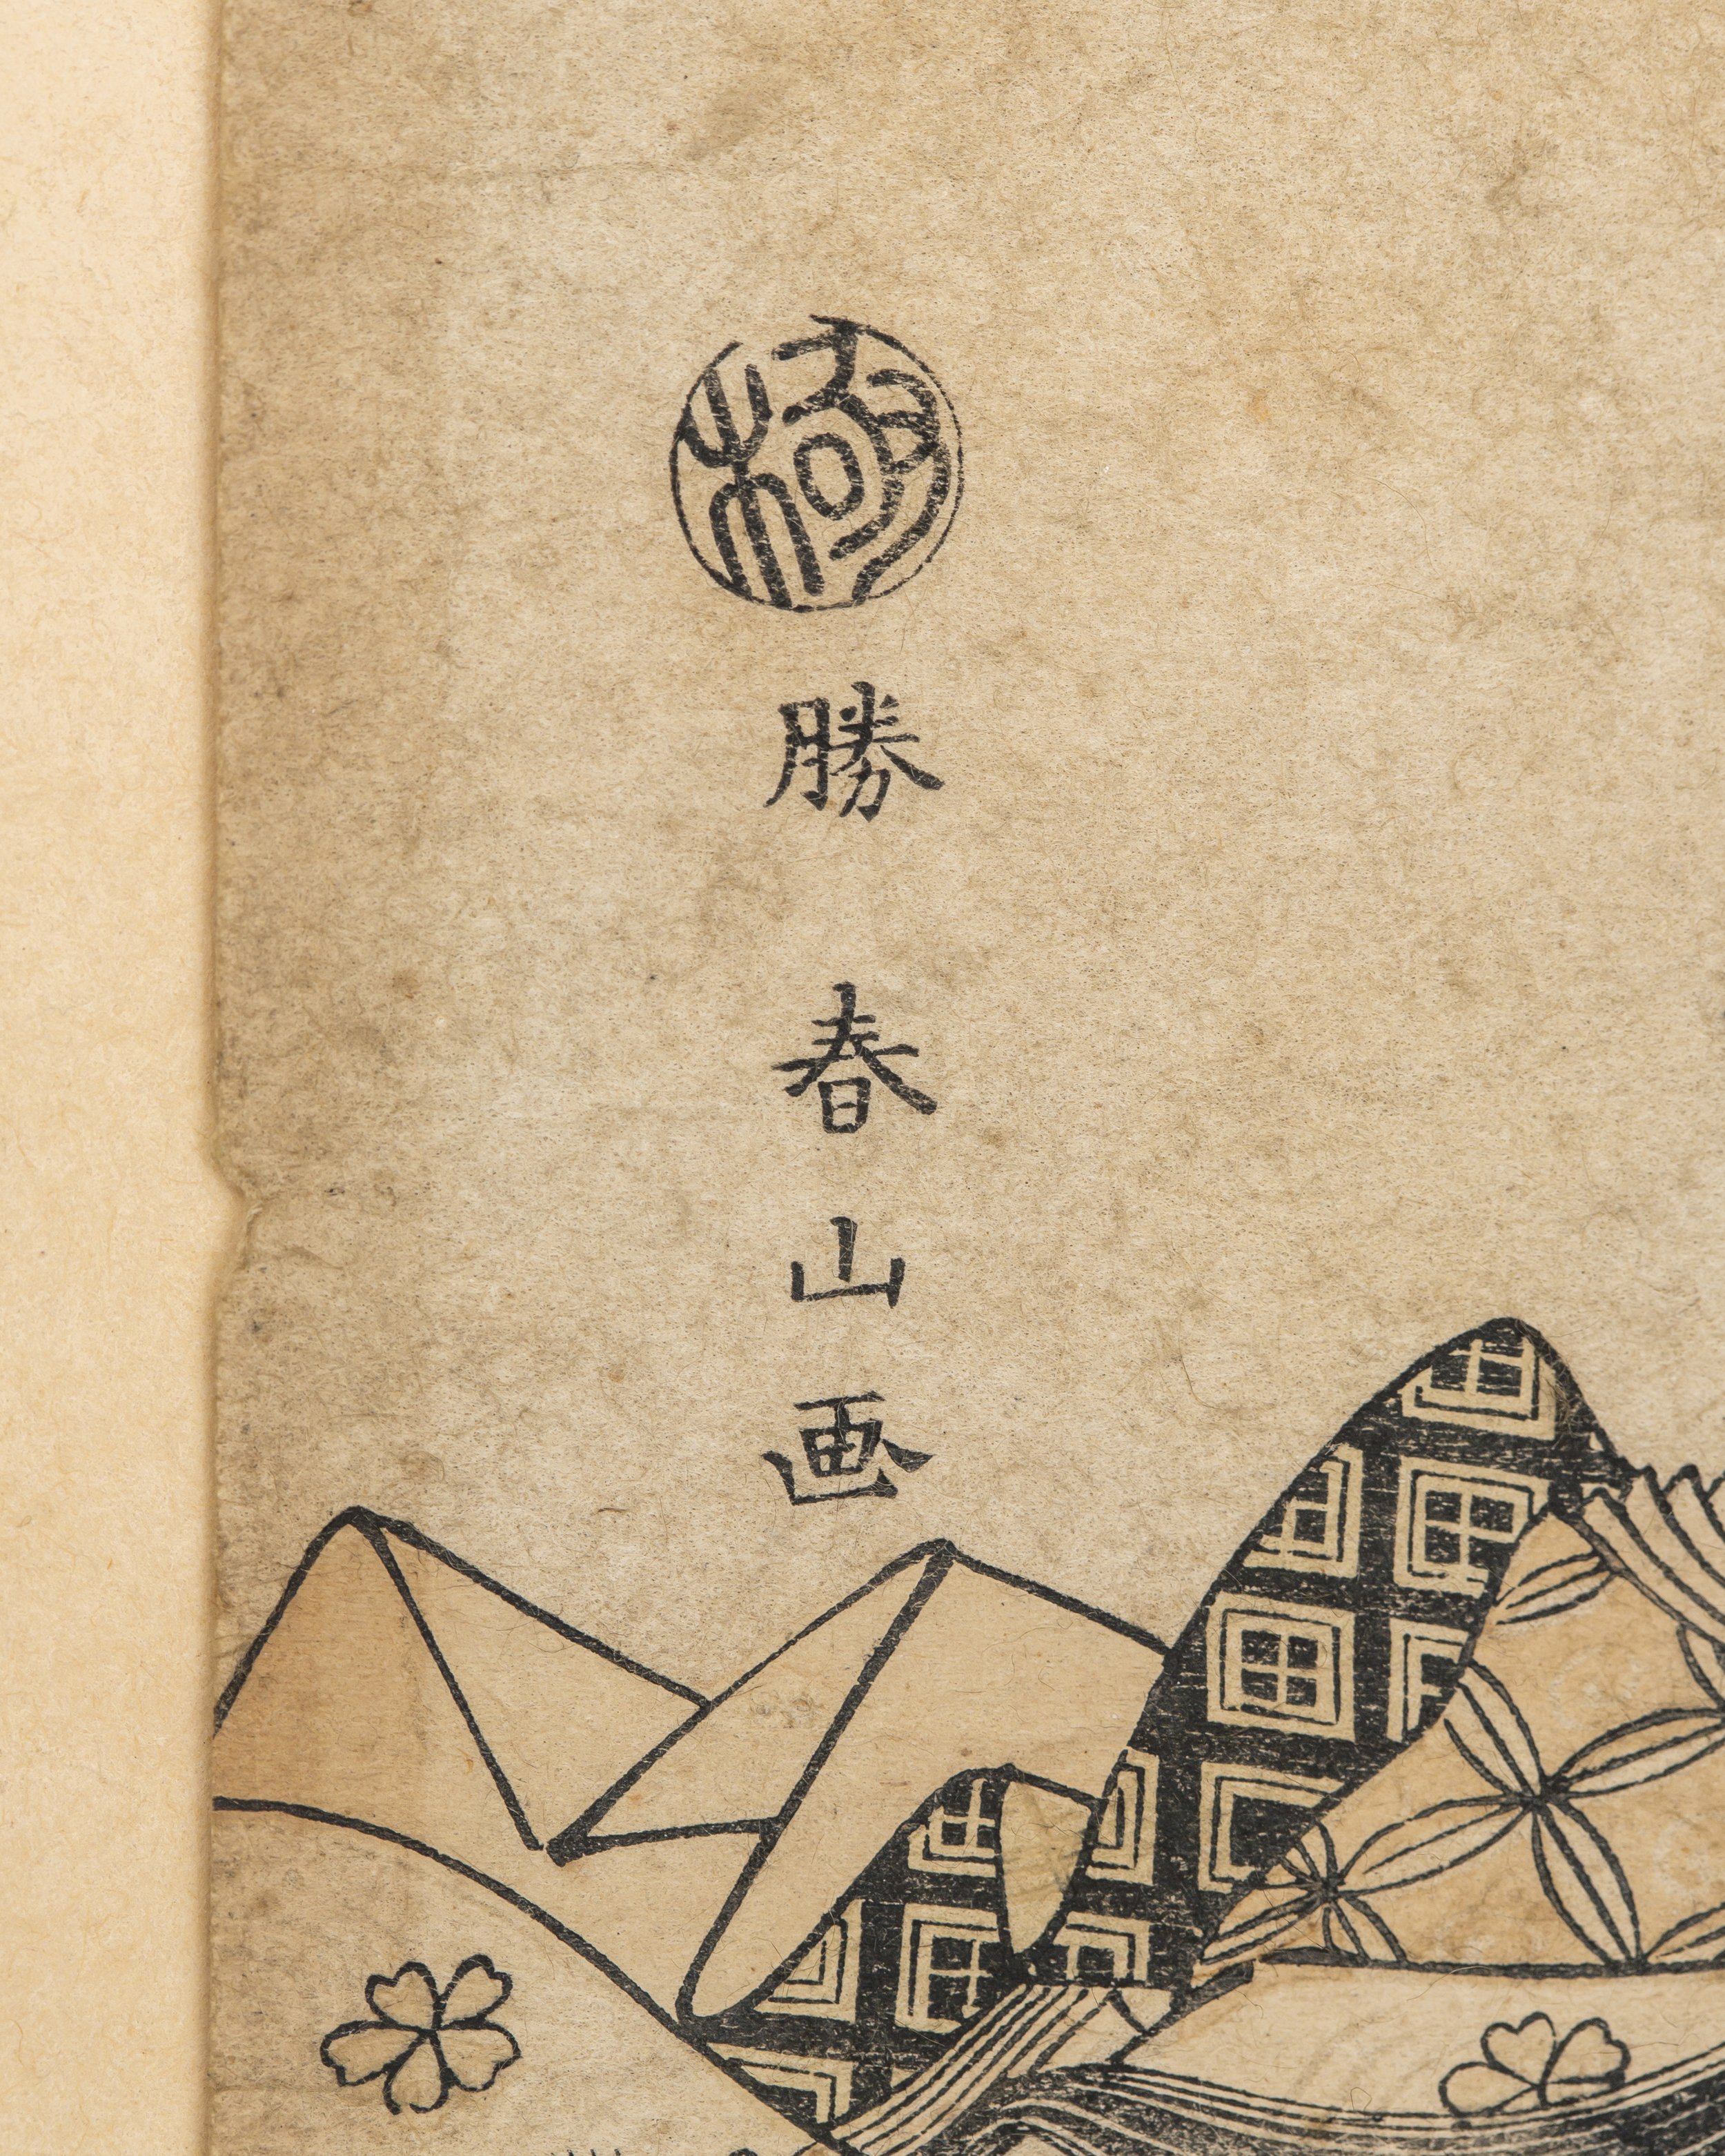 極
勝春山画